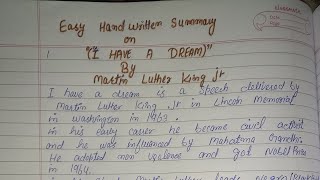 Easy Hand Written Summary
on
"(I HAVE A DREAM)"
By
Martin Luther King Jr
I have a dream is a speech delivered by
Martin Luther King Jr in Lincoln Memorial
in washington in 1963.
in his early career he became civil activist
and he was influenced by Mahatma Gandhi.
He adopted non violence and got Nobel Prize
in 1964.
Martin Luther